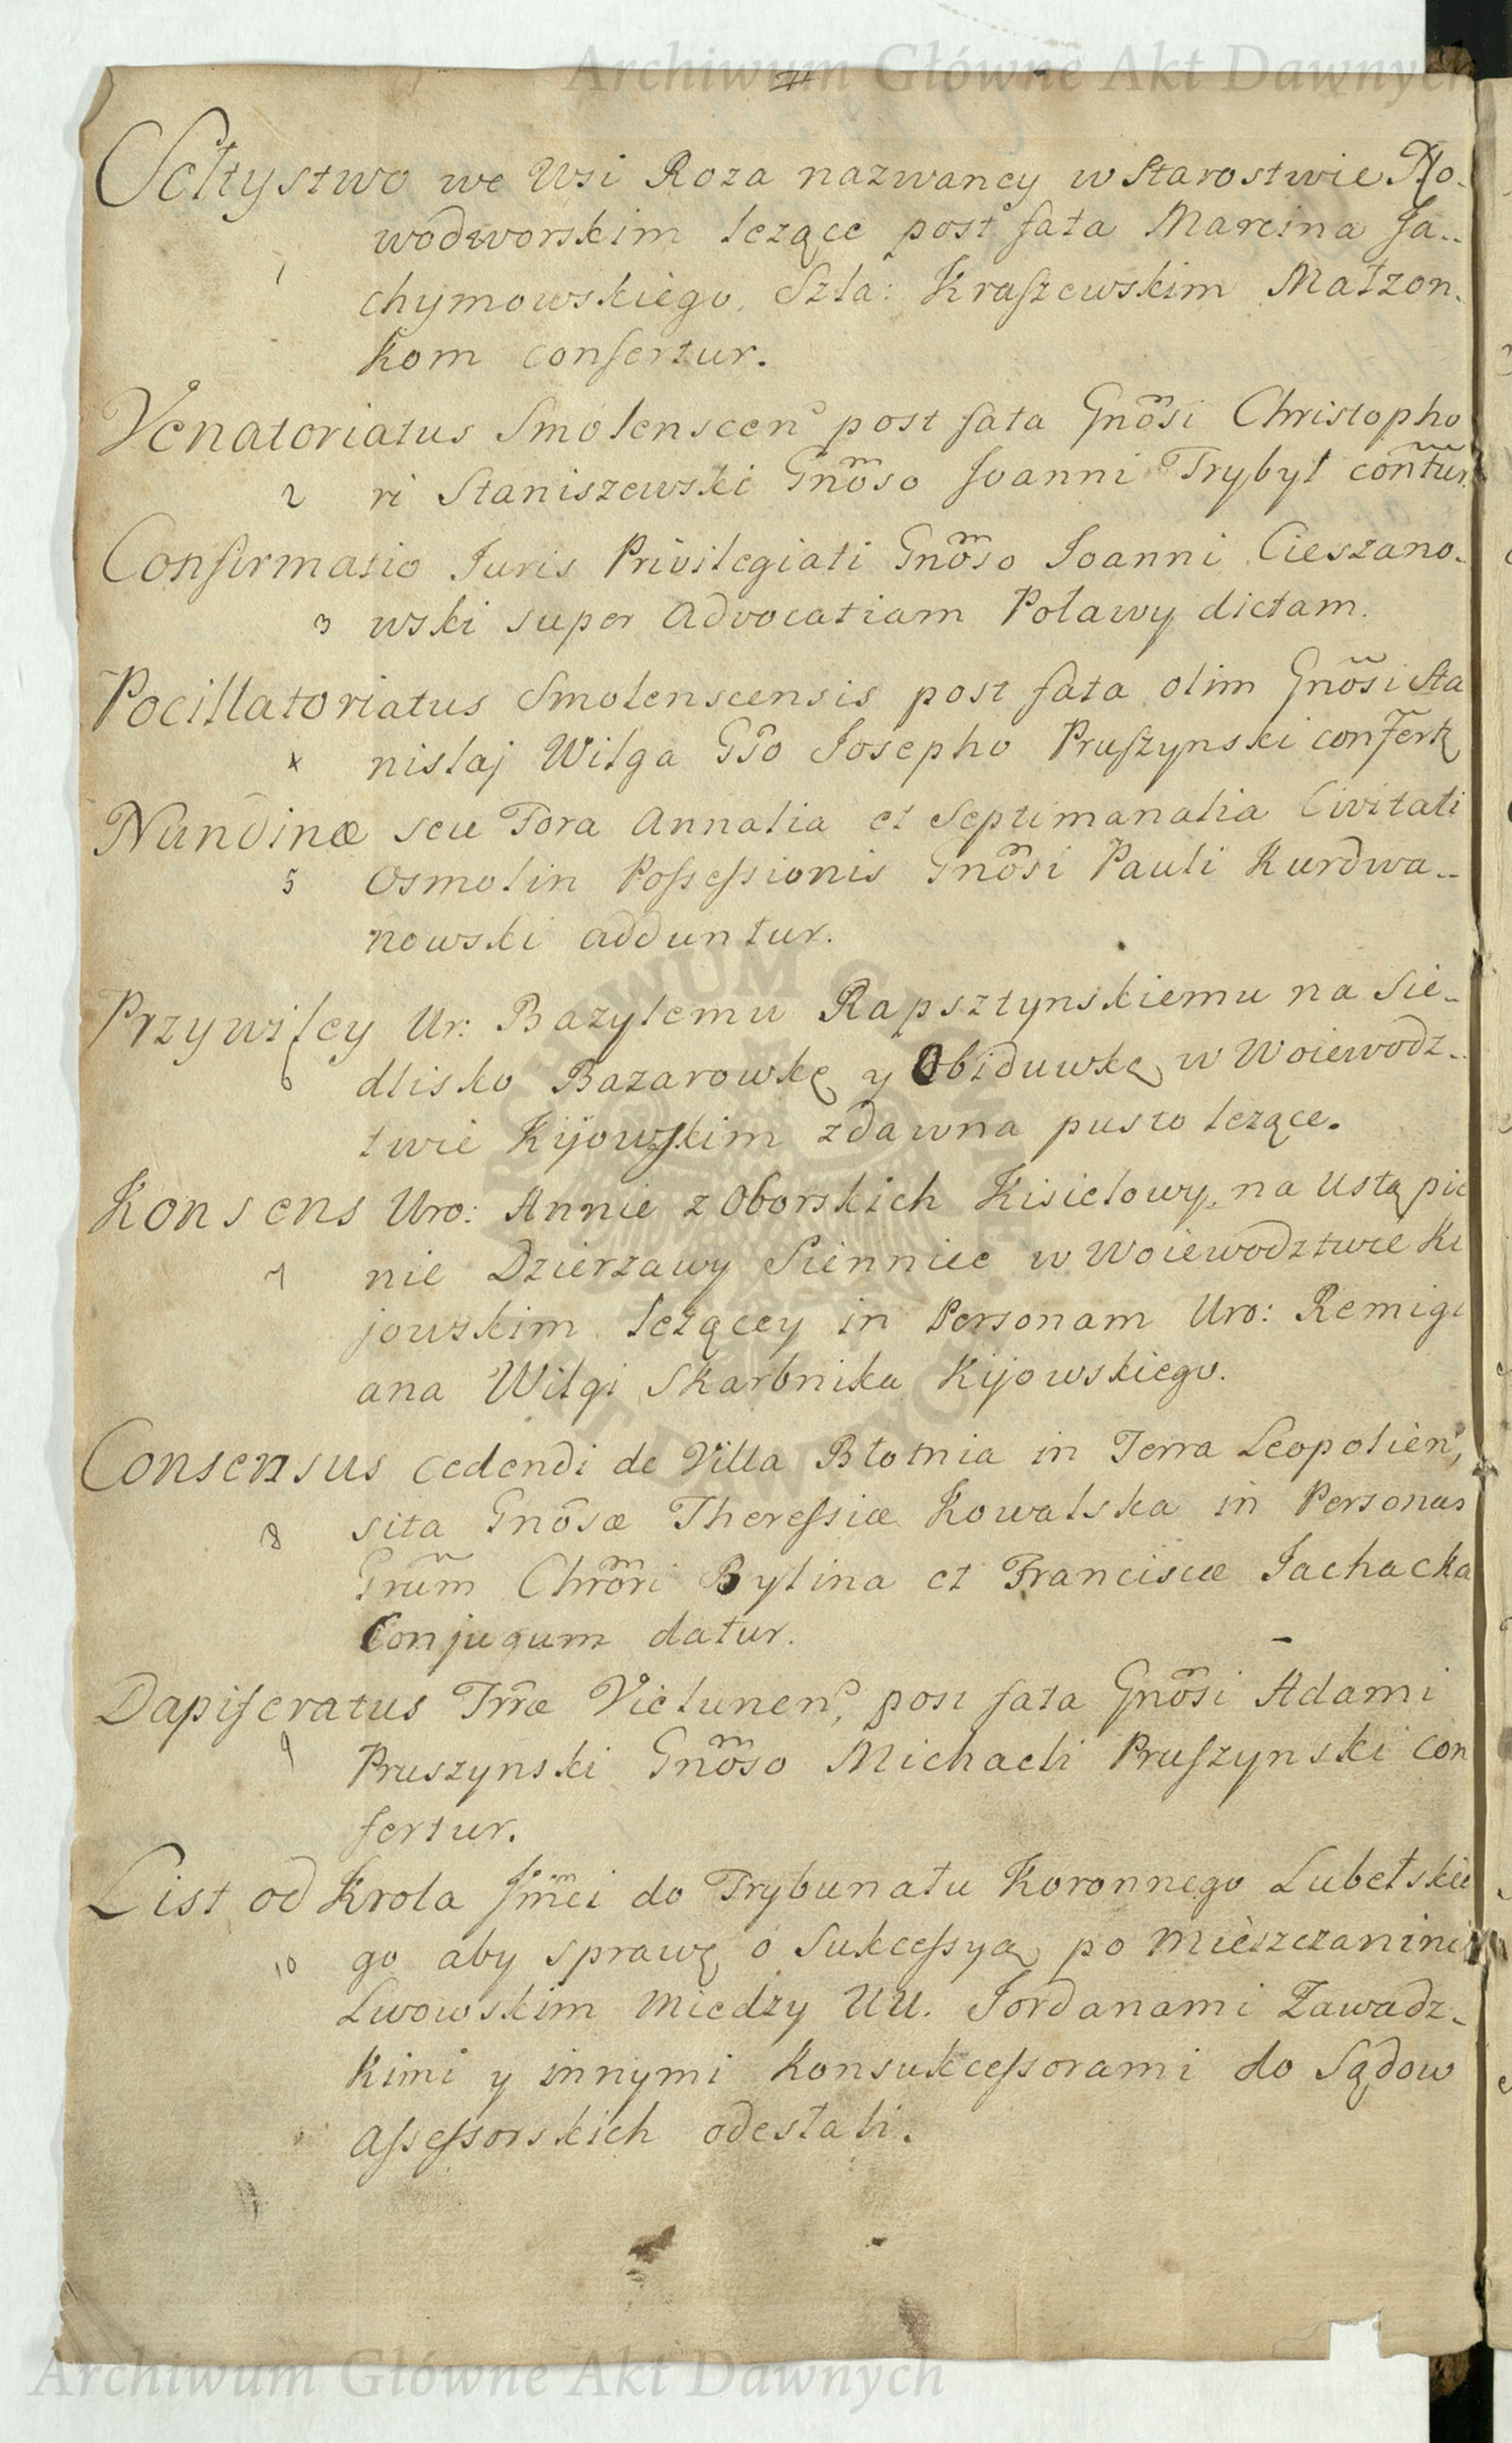 Archiwum Główne Akt Dawnych
Scłtystwo we Wsi Roza nazwaney w Starostwie No-
wodworskim lezące post fata Marcina Ja-
1 chymowskiego, Szla: Kraszewskim Małzon-
kom confertur.
Venatoriatus Smolenscen post fata Gnõsi Christopho
2 ri Staniszewski Gnõso Joanni Trybył conṽtur
Confirmatio Juris Privilegiati Gnõso Joanni Cieszano-
3 wski super Advocatiam Poławy dictam.
Pocillatoriatus Smolenscensis post fata olim Gnõsi Sta
4 nislaj Wilga Gso Josepho Pruszynski confertr
Nundinæ seu Fora Annalia et Septimanalia Civitati
5 Osmolin Possessionis Gnõsi Pauli Kurdwa-
nowski adduntur.
Przywiley Ur: Bazylemu Rapsztynskiemu na Sie-
6 dlisko Bazarowkę y Obiduwkę w Woiewodz-
twie Kijowskim zdawna pusto lezące.
Konsens Uro: Annie z Oborskich Kisielowy, na ustąpie
7 nie Dzierzawy Sienniec w Woiewodztwie Ki
jowskim lezącey in Personam Uro: Remigi
ana Wilgi Skarbnika Kijowskiego.
Consensus cedendi de Villa Błotnia in Terra Leopolien,
8 sita Gnõsæ Theressiæ Kowalska in Personas
Grum Chrõri Bylina et Franciscæ Jachacka
Conjugum datur.
Dapiferatus Trræ Vielunen, post fata Gnõsi Adami
9 Pruszynski Gnõso Michaeli Pruszynski con
fertur.
List od Krola Jmci do Trybunału Koronnego Lubelskie
10 go aby sprawę o Sukcessyą po Mieszczaninie
Lwowskim miedzy UU. Jordanami Zawadz-
kimi y innymi Konsukcessorami do Sądow
Assessorskich odesłali.
ARCHIWUM GŁÓWNE AKT DAWNYCH
Archiwum Główne Akt Dawnych